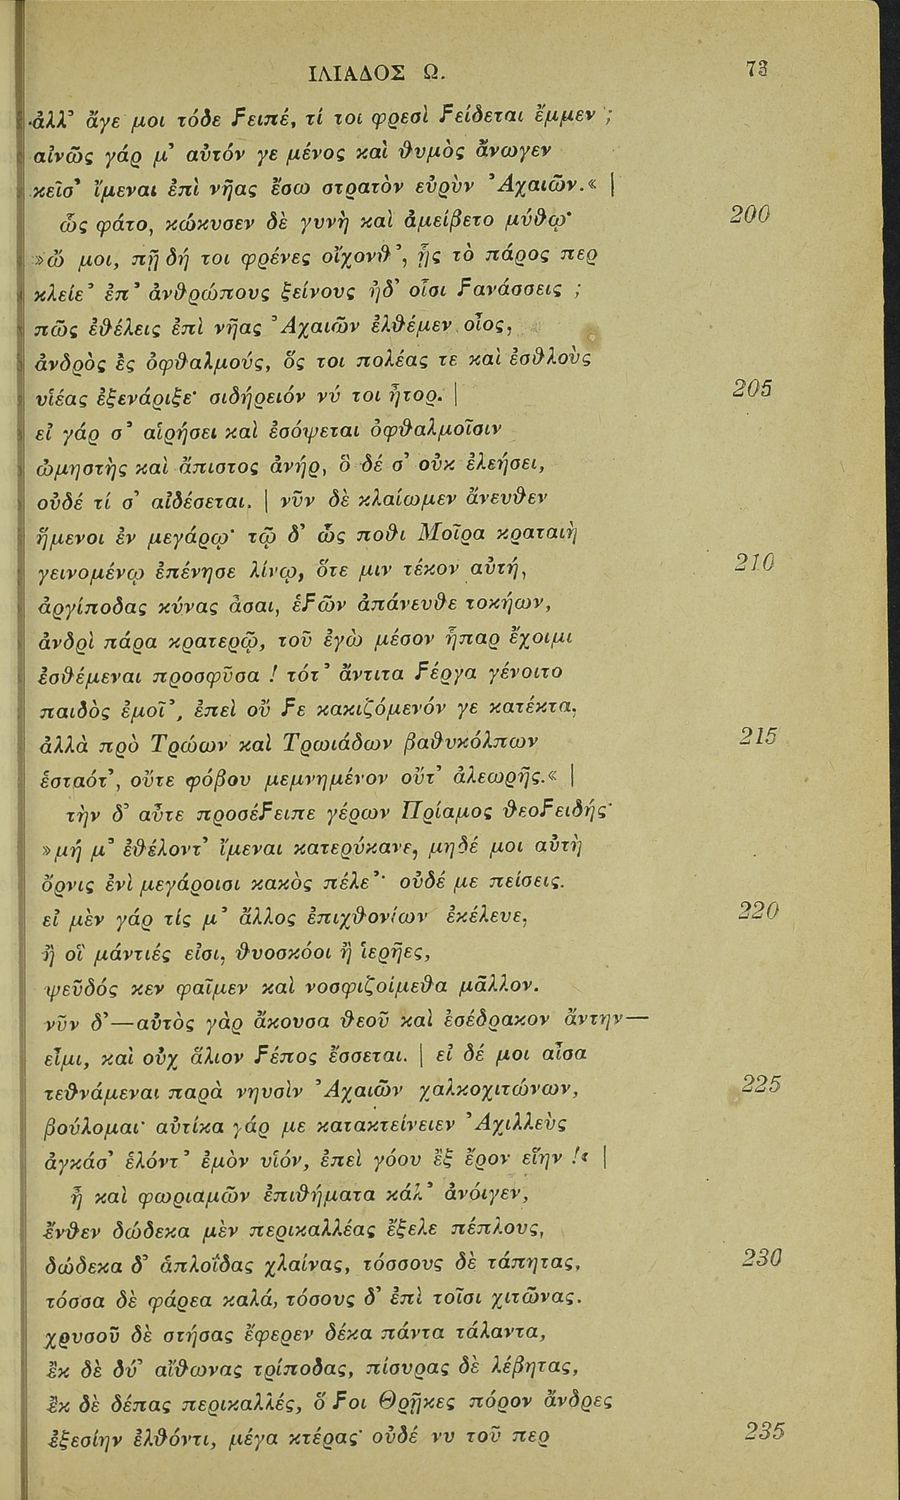 ΙΛΙΑΔΟΣ Ω. 73
ἀλλ’ ἄγε μοι τόδε Ϝειπέ, τί τοι φρεσὶ Ϝείδεται ἔμμεν ;
αἰνῶς γάρ μ’ αὐτόν γε μένος καὶ θυμὸς ἄνωγεν
κεῖσ’ ἴμεναι ἐπὶ νῆας ἔσω στρατὸν εὐρὺν Ἀχαιῶν.« |
ὣς φάτο, κώκυσεν δὲ γυνὴ καὶ ἀμείβετο μύθῳ· 200
»ὤ μοι, πῇ δή τοι φρένες οἴχονθ’, ᾗς τὸ πάρος περ
κλεῖε’ ἐπ’ ἀνθρώπους ξείνους ἠδ’ οἷσι Ϝανάσσεις ;
πῶς ἐθέλεις ἐπὶ νῆας Ἀχαιῶν ἐλθέμεν οἶος,
ἀνδρὸς ἐς ὀφθαλμούς, ὅς τοι πολέας τε καὶ ἐσθλοὺς
υἱέας ἐξενάριξε· σιδήρειόν νύ τοι ἦτορ. | 205
εἰ γάρ σ’ αἱρήσει καὶ ἐσόψεται ὀφθαλμοῖσιν
ὠμηστὴς καὶ ἄπιστος ἀνήρ, ὃ δέ σ’ οὐκ ἐλεήσει,
οὐδέ τί σ’ αἰδέσεται. | νῦν δὲ κλαίωμεν ἄνευθεν
ἥμενοι ἐν μεγάρῳ· τῷ δ’ ὥς ποθι Μοῖρα κραταιὴ
γεινομένῳ ἐπένησε λίνῳ, ὅτε μιν τέκον αὐτή, 210
ἀργίποδας κύνας ἆσαι, ἑϜῶν ἀπάνευθε τοκήων,
ἀνδρὶ πάρα κρατερῷ, τοῦ ἐγὼ μέσον ἧπαρ ἔχοιμι
ἐσθέμεναι προσφῦσα ! τότ’ ἄντιτα Ϝέργα γένοιτο
παιδὸς ἐμοῖ’, ἐπεὶ οὔ Ϝε κακιζόμενόν γε κατέκτα,
ἀλλὰ πρὸ Τρώων καὶ Τρωιάδων βαθυκόλπων 215
ἑσταότ’, οὔτε φόβου μεμνημένον οὔτ’ ἀλεωρῆς.« |
τὴν δ’ αὖτε προσέϜειπε γέρων Πρίαμος θεοϜειδής·
»μή μ’ ἐθέλοντ’ ἴμεναι κατερύκανε, μηδέ μοι αὐτὴ
ὄρνις ἐνὶ μεγάροισι κακὸς πέλε’· οὐδέ με πείσεις.
εἰ μὲν γάρ τίς μ’ ἄλλος ἐπιχθονίων ἐκέλευε, 220
ἢ οἳ μάντιές εἰσι, θυοσκόοι ἢ ἱερῆες,
ψεῦδός κεν φαῖμεν καὶ νοσφιζοίμεθα μᾶλλον.
νῦν δ’—αὐτὸς γὰρ ἄκουσα θεοῦ καὶ ἐσέδρακον ἄντην—
εἶμι, καὶ οὐχ ἅλιον Ϝέπος ἔσσεται. | εἰ δέ μοι αἶσα
τεθνάμεναι παρὰ νηυσὶν Ἀχαιῶν χαλκοχιτώνων, 225
βούλομαι· αὐτίκα γάρ με κατακτείνειεν Ἀχιλλεὺς
ἀγκάσ’ ἑλόντ’ ἐμὸν υἱόν, ἐπεὶ γόου ἐξ ἔρον εἵην !« |
ἦ καὶ φωριαμῶν ἐπιθήματα κάλ’ ἀνόιγεν,
ἔνθεν δώδεκα μὲν περικαλλέας ἔξελε πέπλους,
δώδεκα δ’ ἁπλοΐδας χλαίνας, τόσσους δὲ τάπητας, 230
τόσσα δὲ φάρεα καλά, τόσους δ’ ἐπὶ τοῖσι χιτῶνας.
χρυσοῦ δὲ στήσας ἔφερεν δέκα πάντα τάλαντα,
ἐκ δὲ δύ’ αἴθωνας τρίποδας, πίσυρας δὲ λέβητας,
ἐκ δὲ δέπας περικαλλές, ὅ Ϝοι Θρῇκες πόρον ἄνδρες
ἐξεσίην ἐλθόντι, μέγα κτέρας· οὐδέ νυ τοῦ περ 235